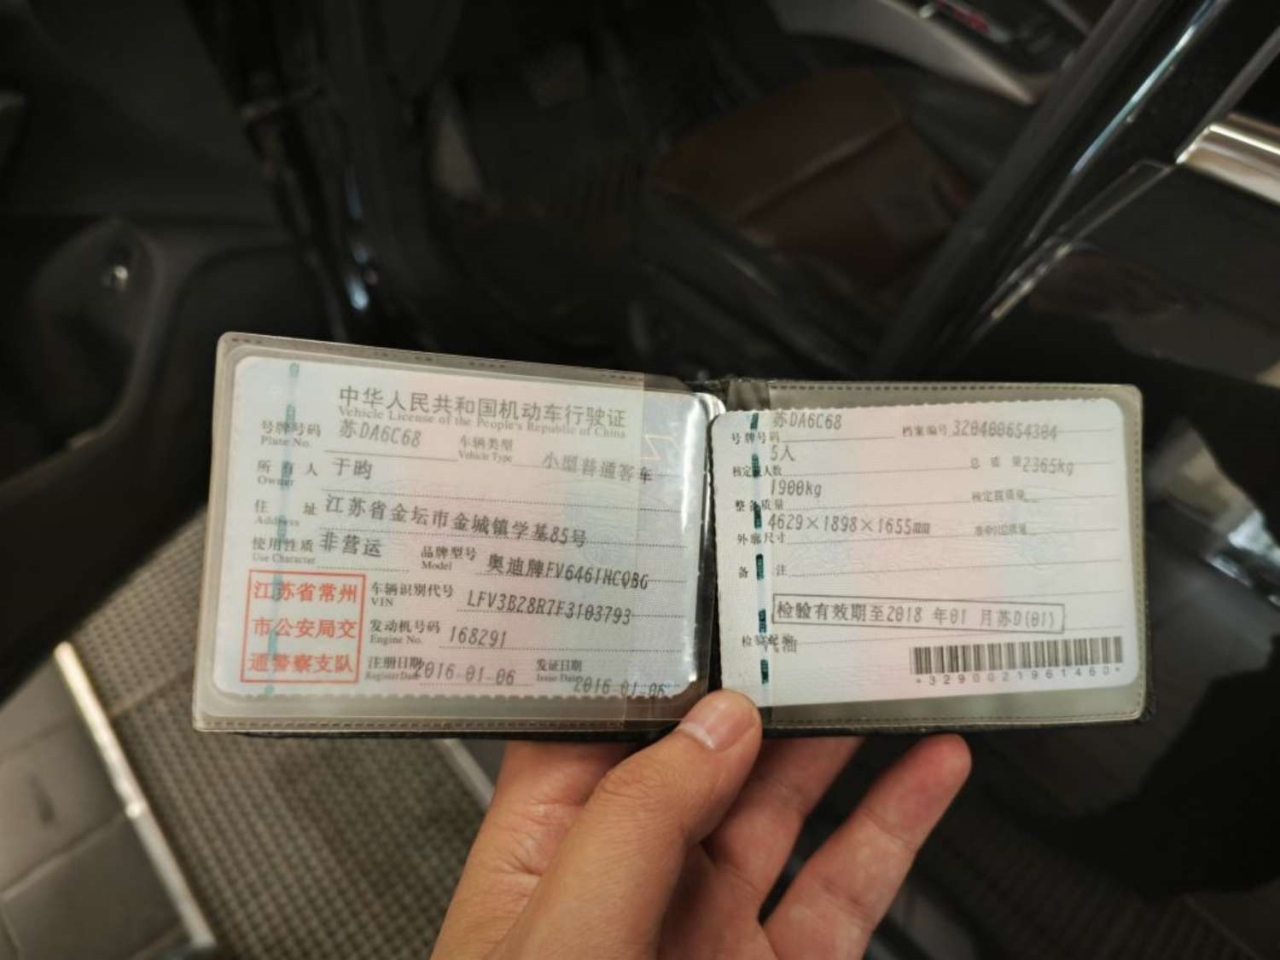 中华人民共和国机动车行驶证
Vehicle License of the People's Republic of China
号牌号码 苏DA6C68 车辆类型 小型普通客车
Plate No. Vehicle Type
所有人 于昀
Owner
住址 江苏省金坛市金城镇学基85号
Address
使用性质 非营运 品牌型号 奥迪牌FV6461HCQBG
Use Character Model
江苏省常州
市公安局交
通警察支队
车辆识别代号 LFV3B28R7F3103793
VIN
发动机号码 168291
Engine No.
注册日期 2016-01-06 发证日期 2016-01-06
Register Date Issue Date
号牌号码 苏DA6C68 档案编号 320400654304
核定载人数 5人 总质量 2365kg
整备质量 1900kg 核定载质量
外廓尺寸 4629×1898×1655mm 准牵引总质量
备注
检验有效期至2018年01月苏D(01)
检验记录 汽油
*3290021961460*